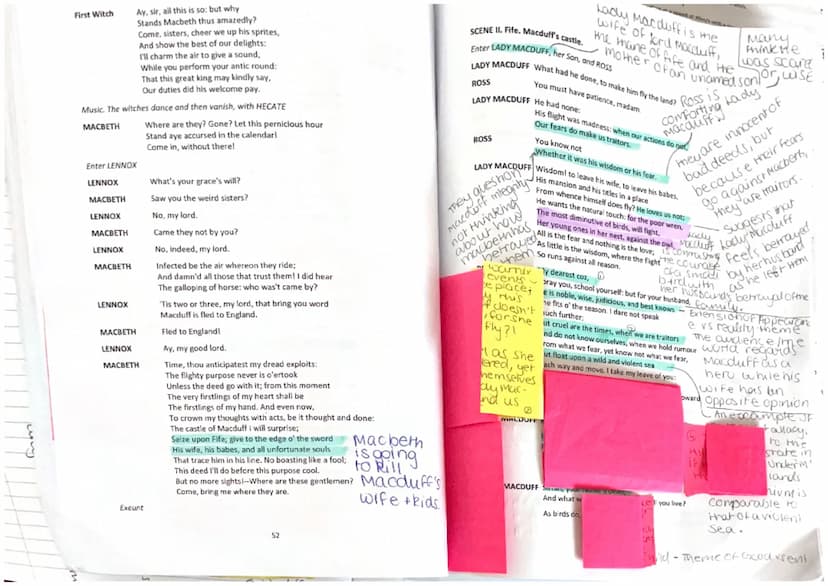 First Witch Ay, sir, all this is so: but why
Stands Macbeth thus amazedly?
Come, sisters, cheer we up his sprites,
And show the best of our delights:
I'll charm the air to give a sound,
While you perform your antic round:
That this great king may kindly say,
Our duties did his welcome pay.
Music. The witches dance and then vanish, with HECATE
MACBETH Where are they? Gone? Let this pernicious hour
Stand aye accursed in the calendar!
Come in, without there!
Enter LENNOX
LENNOX What's your grace's will?
MACBETH Saw you the weird sisters?
LENNOX No, my lord.
MACBETH Came they not by you?
LENNOX No, indeed, my lord.
MACBETH Infected be the air whereon they ride;
And damn'd all those that trust them! I did hear
The galloping of horse: who was't came by?
LENNOX 'Tis two or three, my lord, that bring you word
Macduff is fled to England.
MACBETH Fled to England!
LENNOX Ay, my good lord.
MACBETH Time, thou anticipatest my dread exploits:
The flighty purpose never is o'ertook
Unless the deed go with it; from this moment
The very firstlings of my heart shall be
The firstlings of my hand. And even now,
To crown my thoughts with acts, be it thought and done:
The castle of Macduff I will surprise;
Seize upon Fife; give to the edge o' the sword
His wife, his babes, and all unfortunate souls
That trace him in his line. No boasting like a fool;
This deed I'll do before this purpose cool.
But no more sights!—Where are these gentlemen?
Come, bring me where they are.
Exeunt
52
Macbeth
is going
to kill
Macduff's
wife + kids
SCENE II. Fife. Macduff's castle.
Enter LADY MACDUFF, her Son, and ROSS
LADY MACDUFF What had he done, to make him fly the land?
ROSS You must have patience, madam
LADY MACDUFF He had none:
His flight was madness: when our actions do not,
Our fears do make us traitors.
ROSS You know not
Whether it was his wisdom or his fear.
LADY MACDUFF Wisdom! to leave his wife, to leave his babes,
His mansion and his titles in a place
From whence himself does fly? He loves us not;
He wants the natural touch: for the poor wren,
The most diminutive of birds, will fight,
Her young ones in her nest, against the owl.
All is the fear and nothing is the love;
As little is the wisdom, where the flight
So runs against all reason.
dearest coz,
pray you, school yourself: but for your husband,
is noble, wise, judicious, and best knows
fits o' the season. I dare not speak
much further;
cruel are the times, when we are traitors
do not know ourselves, when we hold rumour
from what we fear, yet know not what we fear,
float upon a wild and violent sea
way and move. I take my leave of you:
MACDUFF
MACDUFF
And what
you live?
As birds do
Lady Macduff is the
wife of lord Macduff,
the thane of fife and the
mother of an unamed son
Many
think he
was scared
or, wise
Ross is
comforting Lady
Macduff
they are innocent of
bad deeds, but
because their fears
go against Macbeth,
they are traitors.
suggests that
Lady Macduff
feels betrayed
by her husband
as he left them
They question
Macduff
not thinking
about how
Macbeth has
betrayed
bird with
family.
Extension of Appearance
vs reality theme
The audience/the
world regards
Macduff as a
hero while his
wife has an
opposite opinion
An example of
comparable to
that of a violent
sea.
events
place
this
doesn't
for she
fly?!
as she
yet
themselves
and us